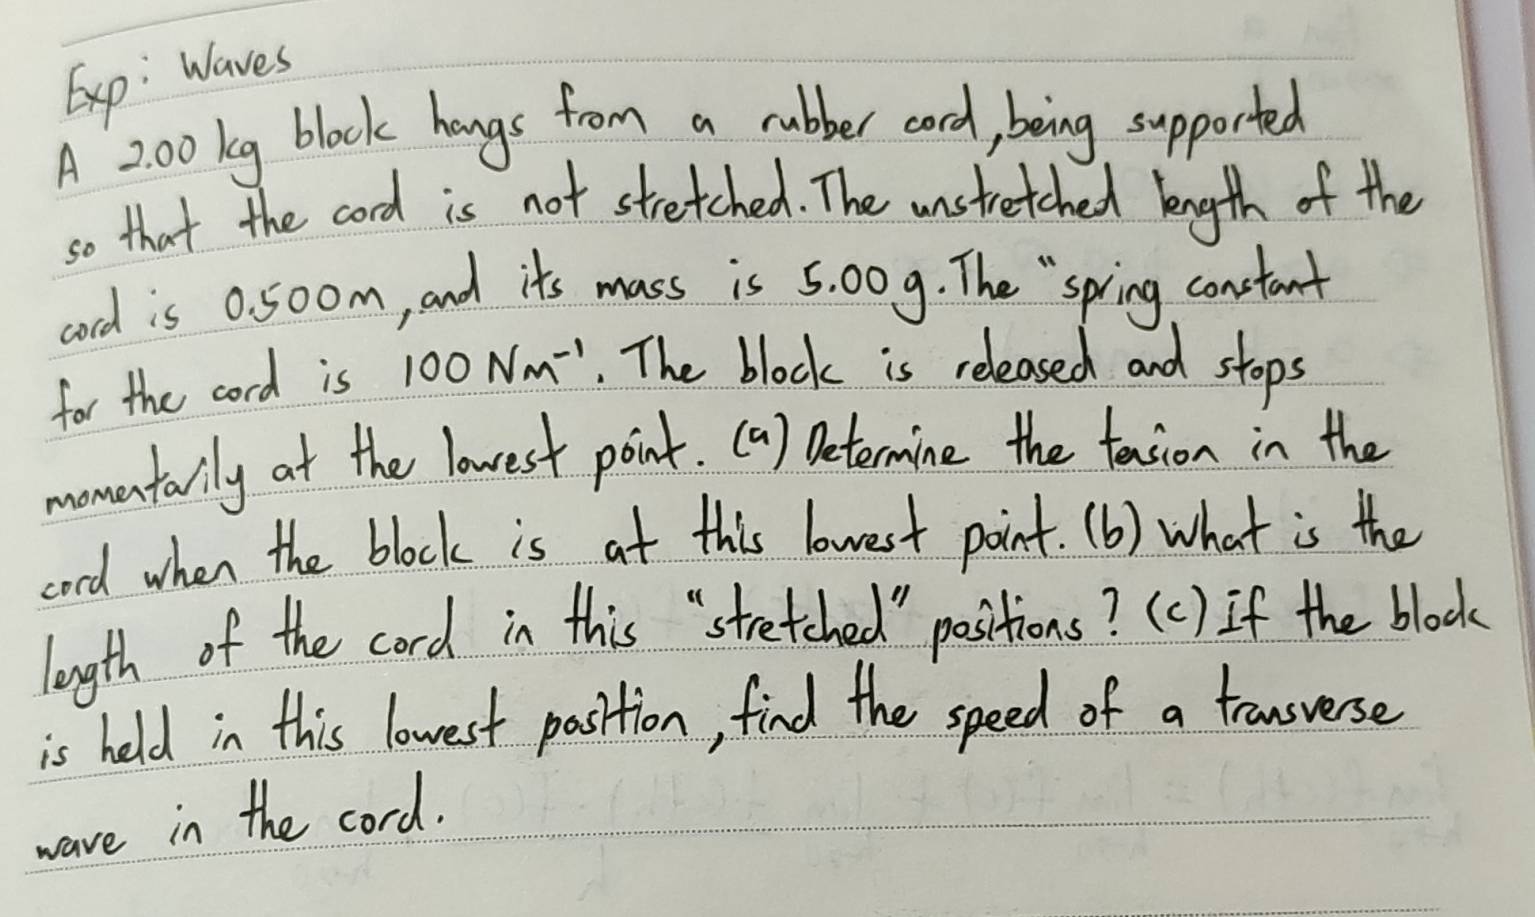 Exp: Waves
A 2.00 kg block hangs from a rubber cord, being supported
so that the cord is not stretched. The unstretched length of the
cord is 0.500m, and its mass is 5.00 g. The "spring constant
for the cord is 100 Nm⁻¹. The block is released and stops
momentarily at the lowest point. (a) Determine the tension in the
cord when the block is at this lowest point. (b) What is the
length of the cord in this "stretched" positions? (c) If the block
is held in this lowest position, find the speed of a transverse
wave in the cord.